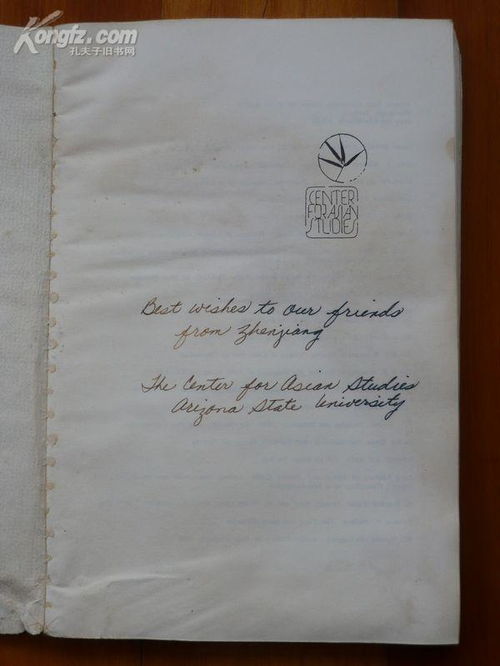 Kongfz.com
孔夫子旧书网
CENTER
FOR ASIAN
STUDIES
Best wishes to our friends
from Zhenjiang
The Center for Asian Studies
Arizona State University